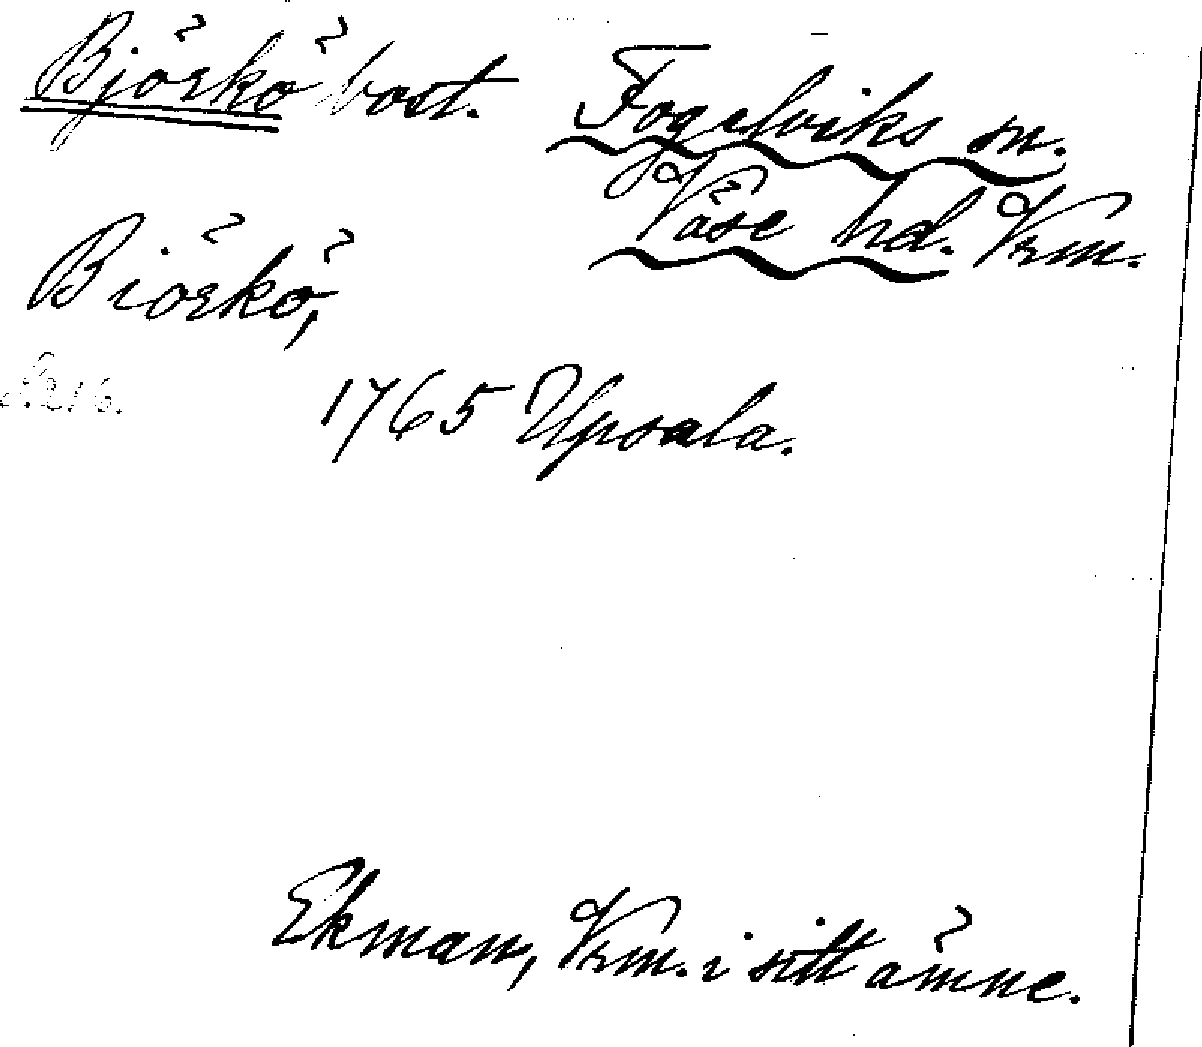 Björkö bost. Fogelviks sn.
Väse hd. Vrm.
Biörkö,
1765 Upsala.
Ekman, Vrm. i sitt ämne.